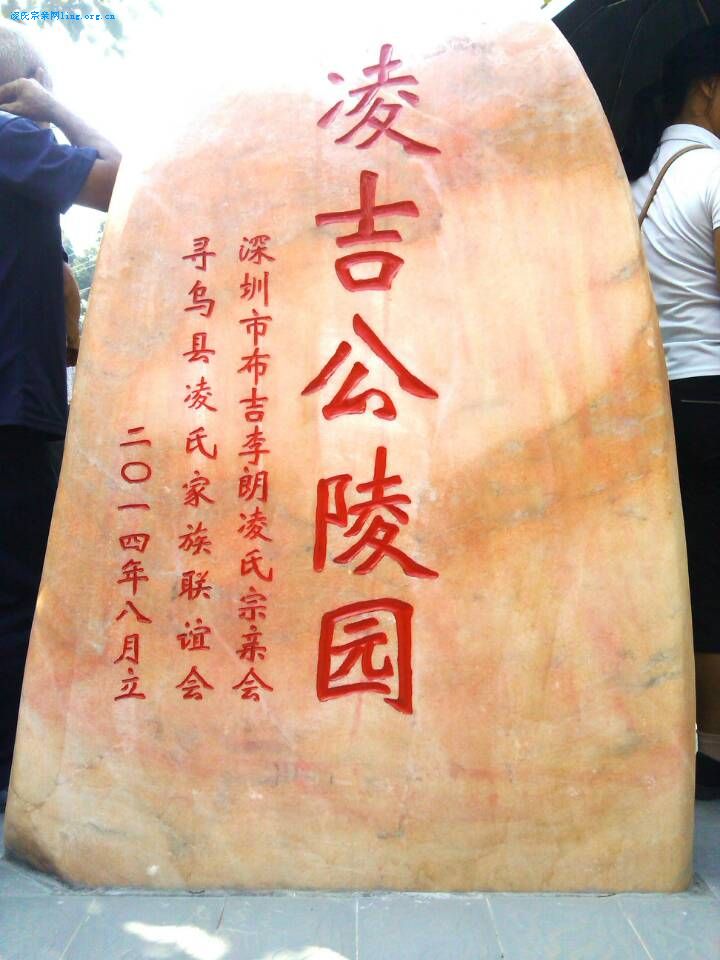 凌氏宗亲网ling.org.cn
凌吉公陵园
深圳市布吉李朗凌氏宗亲会
寻乌县凌氏家族联谊会
二〇一四年八月立